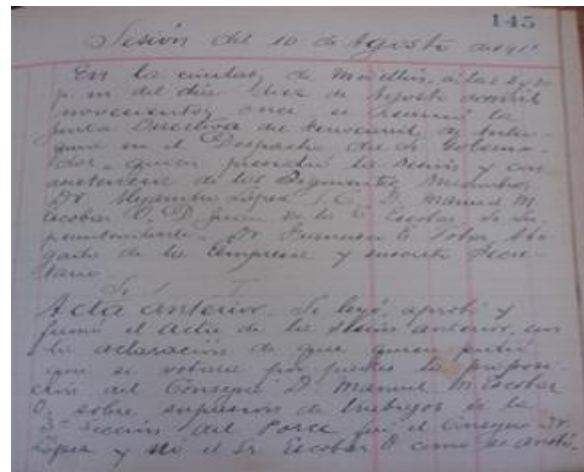 145
Sesión del 10 de Agosto de 1911
En la ciudad de Medellín, a las 2 y 20
p. m. del día diez de Agosto de mil
novecientos once se reunió la
Junta Directiva del Ferrocarril de Antio-
quia en el Despacho del Sr. Goberna-
dor, quien presidió la sesión y con
asistencia de los siguientes miembros
Dr. Alejandro López I. C., D. Manuel M.
Escobar O. D. Juan de la C. Escobar
Dr. Francisco E. Tobar Abo
gado de la Empresa y suscrito Secre-
tario.
I
Acta anterior. Se leyó, aprobó y
firmó el acta de la sesión anterior, con
la aclaración de que quien pidió
que se votara por partes la proposi-
ción del Consejero D. Manuel M. Escobar
O. sobre supresión de trabajos de la
3ª Sección del Porce fue el Consejero Dr.
López y no el Sr. Escobar O como se anotó.